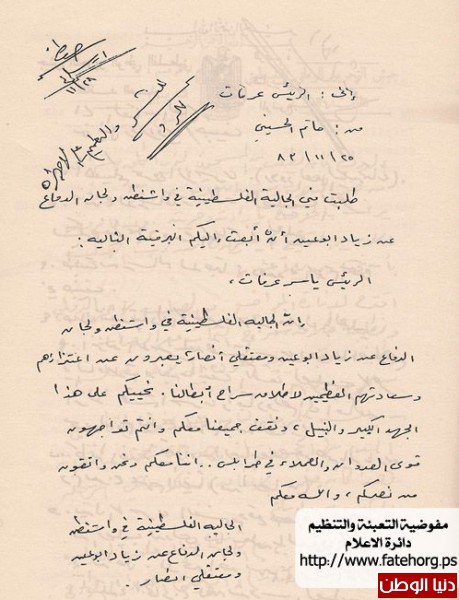 إلى : الرئيس عرفات
من : حاتم الحسيني
٨٣/١١/٢٥
طلبت مني الجالية الفلسطينية في واشنطن ولجان الدفاع
عن زياد ابوعين أن أبعث إليكم البرقية التالية :
الرئيس ياسر عرفات ،
إن الجالية الفلسطينية في واشنطن ولجان
الدفاع عن زياد ابوعين ومعتقلي أنصار يعبرون عن اعتزازهم
وسعادتهم العظيمين لاطلاق سراح أبطالنا . نحييكم على هذا
الجهد الكبير والنبيل ، ونقف جميعنا معكم وانتم تواجهون
قوى العدوان والعملاء في طرابلس . . اننا معكم ونحن واثقون
من نصركم ، والله معكم
الجالية الفلسطينية في واشنطن
ولجان الدفاع عن زياد ابوعين
ومعتقلي انصار .
مفوضية التعبئة والتنظيم
دائرة الاعلام
http://www.fatehorg.ps
دنيا الوطن